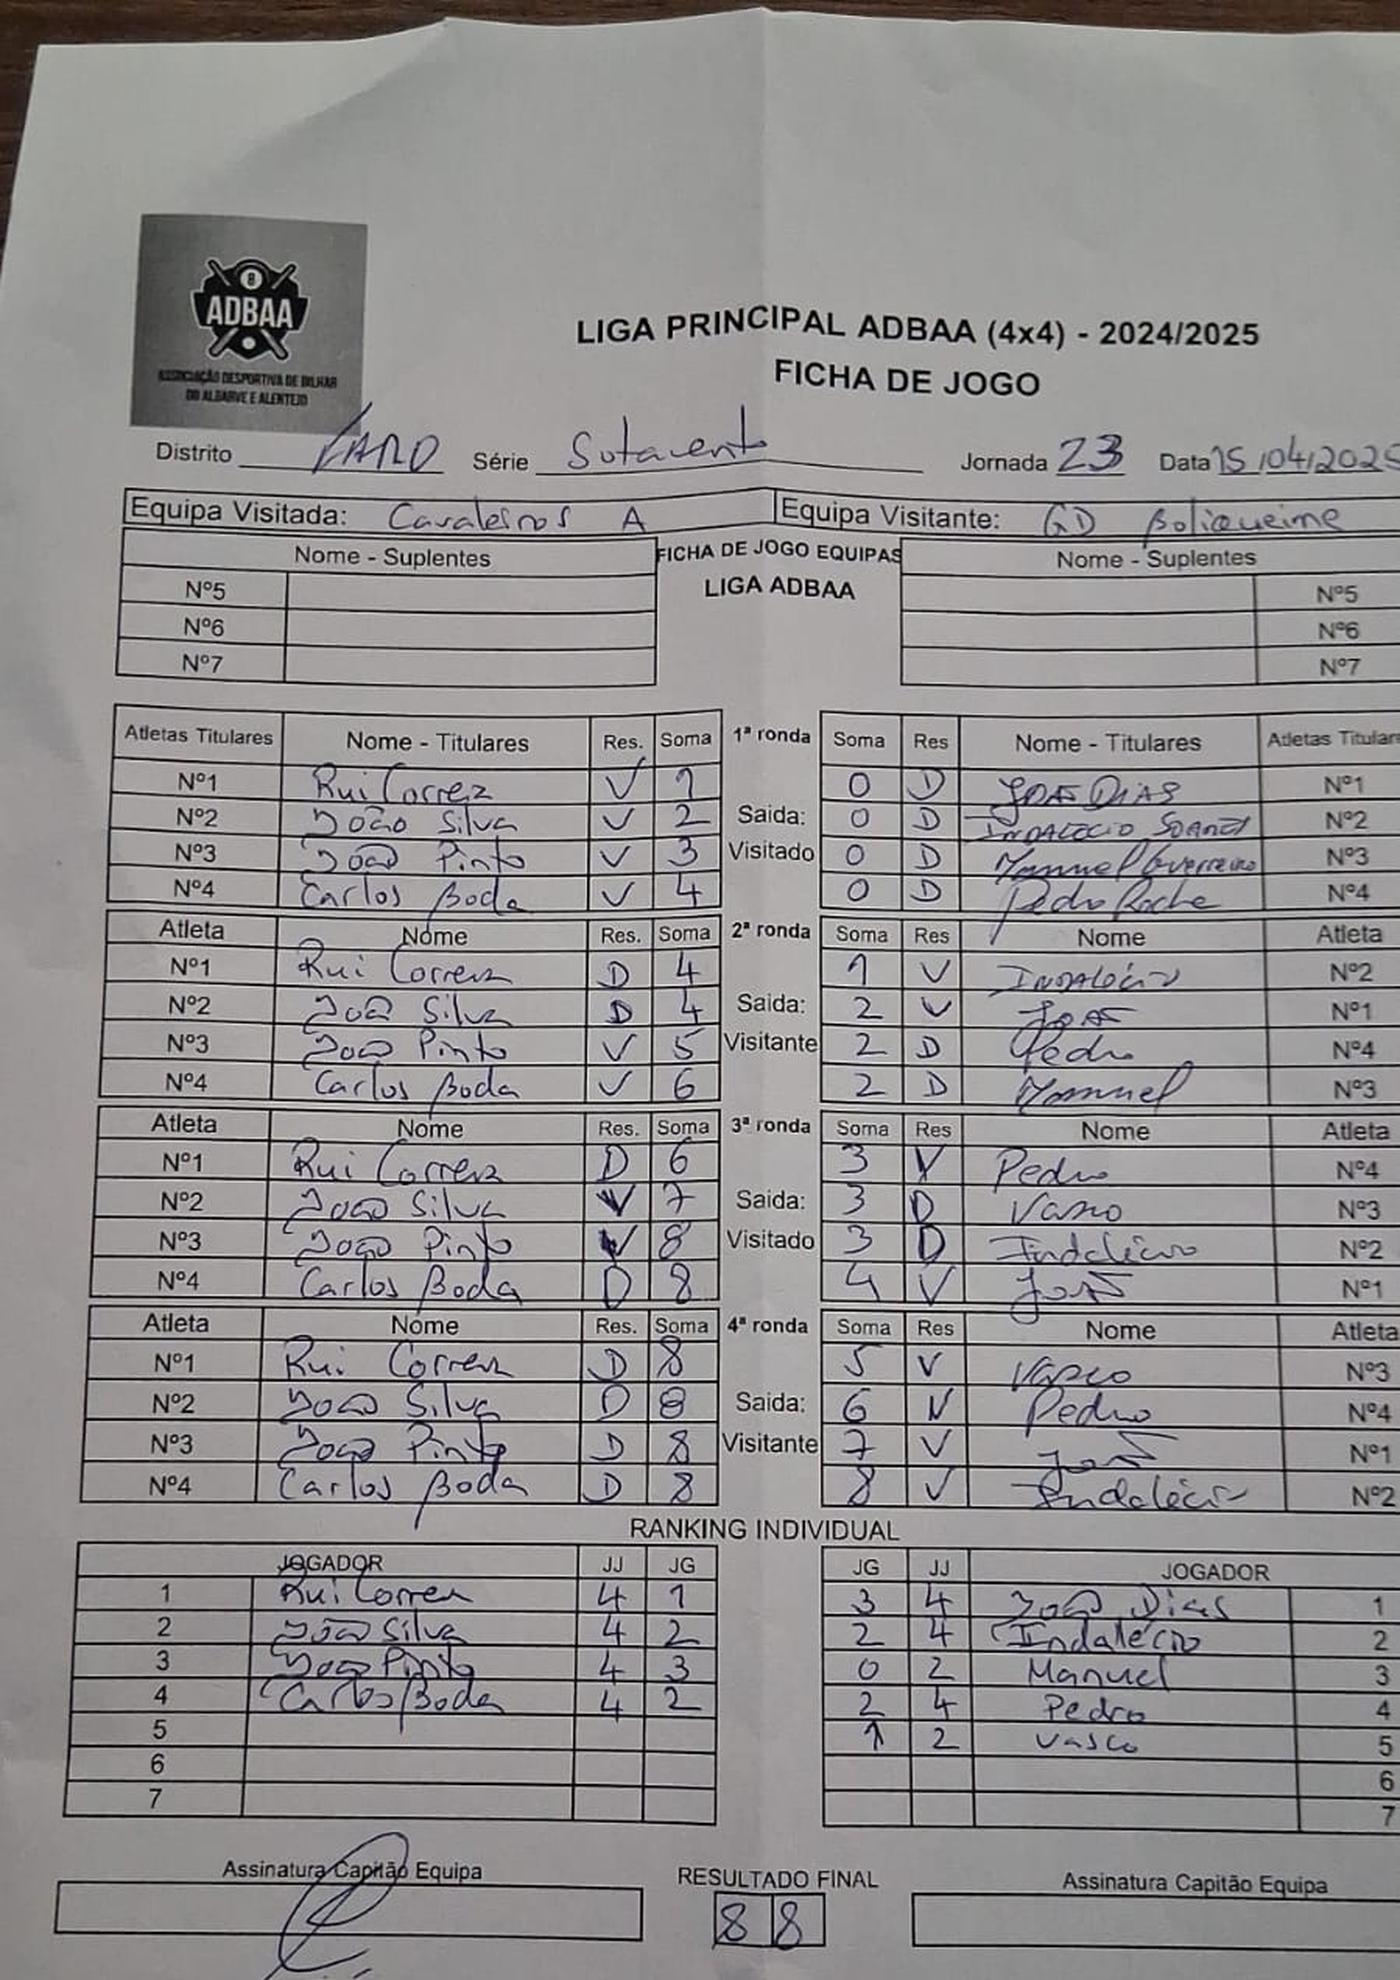 8
ADBAA
ASSOCIAÇÃO DESPORTIVA DE BILHAR
DO ALGARVE E ALENTEJO
LIGA PRINCIPAL ADBAA (4x4) - 2024/2025
FICHA DE JOGO
Distrito FARO Série Sotavento Jornada 23 Data 15/04/2025
Equipa Visitada: Cavaleiros A Equipa Visitante: GD Boliqueime
Nome - Suplentes FICHA DE JOGO EQUIPAS Nome - Suplentes
Nº5 LIGA ADBAA Nº5
Nº6 Nº6
Nº7 Nº7
Atletas Titulares Nome - Titulares Res. Soma 1ª ronda Soma Res Nome - Titulares Atletas Titulare
Nº1 Rui Correia V 1 0 D João Dias Nº1
Nº2 João Silva V 2 Saida: 0 D INDALÉCIO SOARES Nº2
Nº3 João Pinto V 3 Visitado 0 D Manuel Guerreiro Nº3
Nº4 Carlos Boda V 4 0 D Pedro Rocha Nº4
Atleta Nome Res. Soma 2ª ronda Soma Res Nome Atleta
Nº1 Rui Correia D 4 1 V INDALÉCIO Nº2
Nº2 João Silva D 4 Saida: 2 V JOÃO Nº1
Nº3 João Pinto V 5 Visitante 2 D Pedro Nº4
Nº4 Carlos Boda V 6 2 D Manuel Nº3
Atleta Nome Res. Soma 3ª ronda Soma Res Nome Atleta
Nº1 Rui Correia D 6 3 V Pedro Nº4
Nº2 João Silva V 7 Saida: 3 D Vasco Nº3
Nº3 João Pinto V 8 Visitado 3 D Indalécio Nº2
Nº4 Carlos Boda D 8 4 V João Nº1
Atleta Nome Res. Soma 4ª ronda Soma Res Nome Atleta
Nº1 Rui Correia D 8 5 V Vasco Nº3
Nº2 João Silva D 8 Saida: 6 V Pedro Nº4
Nº3 João Pinto D 8 Visitante 7 V João Nº1
Nº4 Carlos Boda D 8 8 V Indalécio Nº2
RANKING INDIVIDUAL
JOGADOR JJ JG JG JJ JOGADOR
1 Rui Correia 4 1 3 4 João Dias 1
2 João Silva 4 2 2 4 Indalécio 2
3 João Pinto 4 3 0 2 Manuel 3
4 Carlos Boda 4 2 2 4 Pedro 4
5 1 2 Vasco 5
6 6
7 7
Assinatura Capitão Equipa RESULTADO FINAL Assinatura Capitão Equipa
8 8